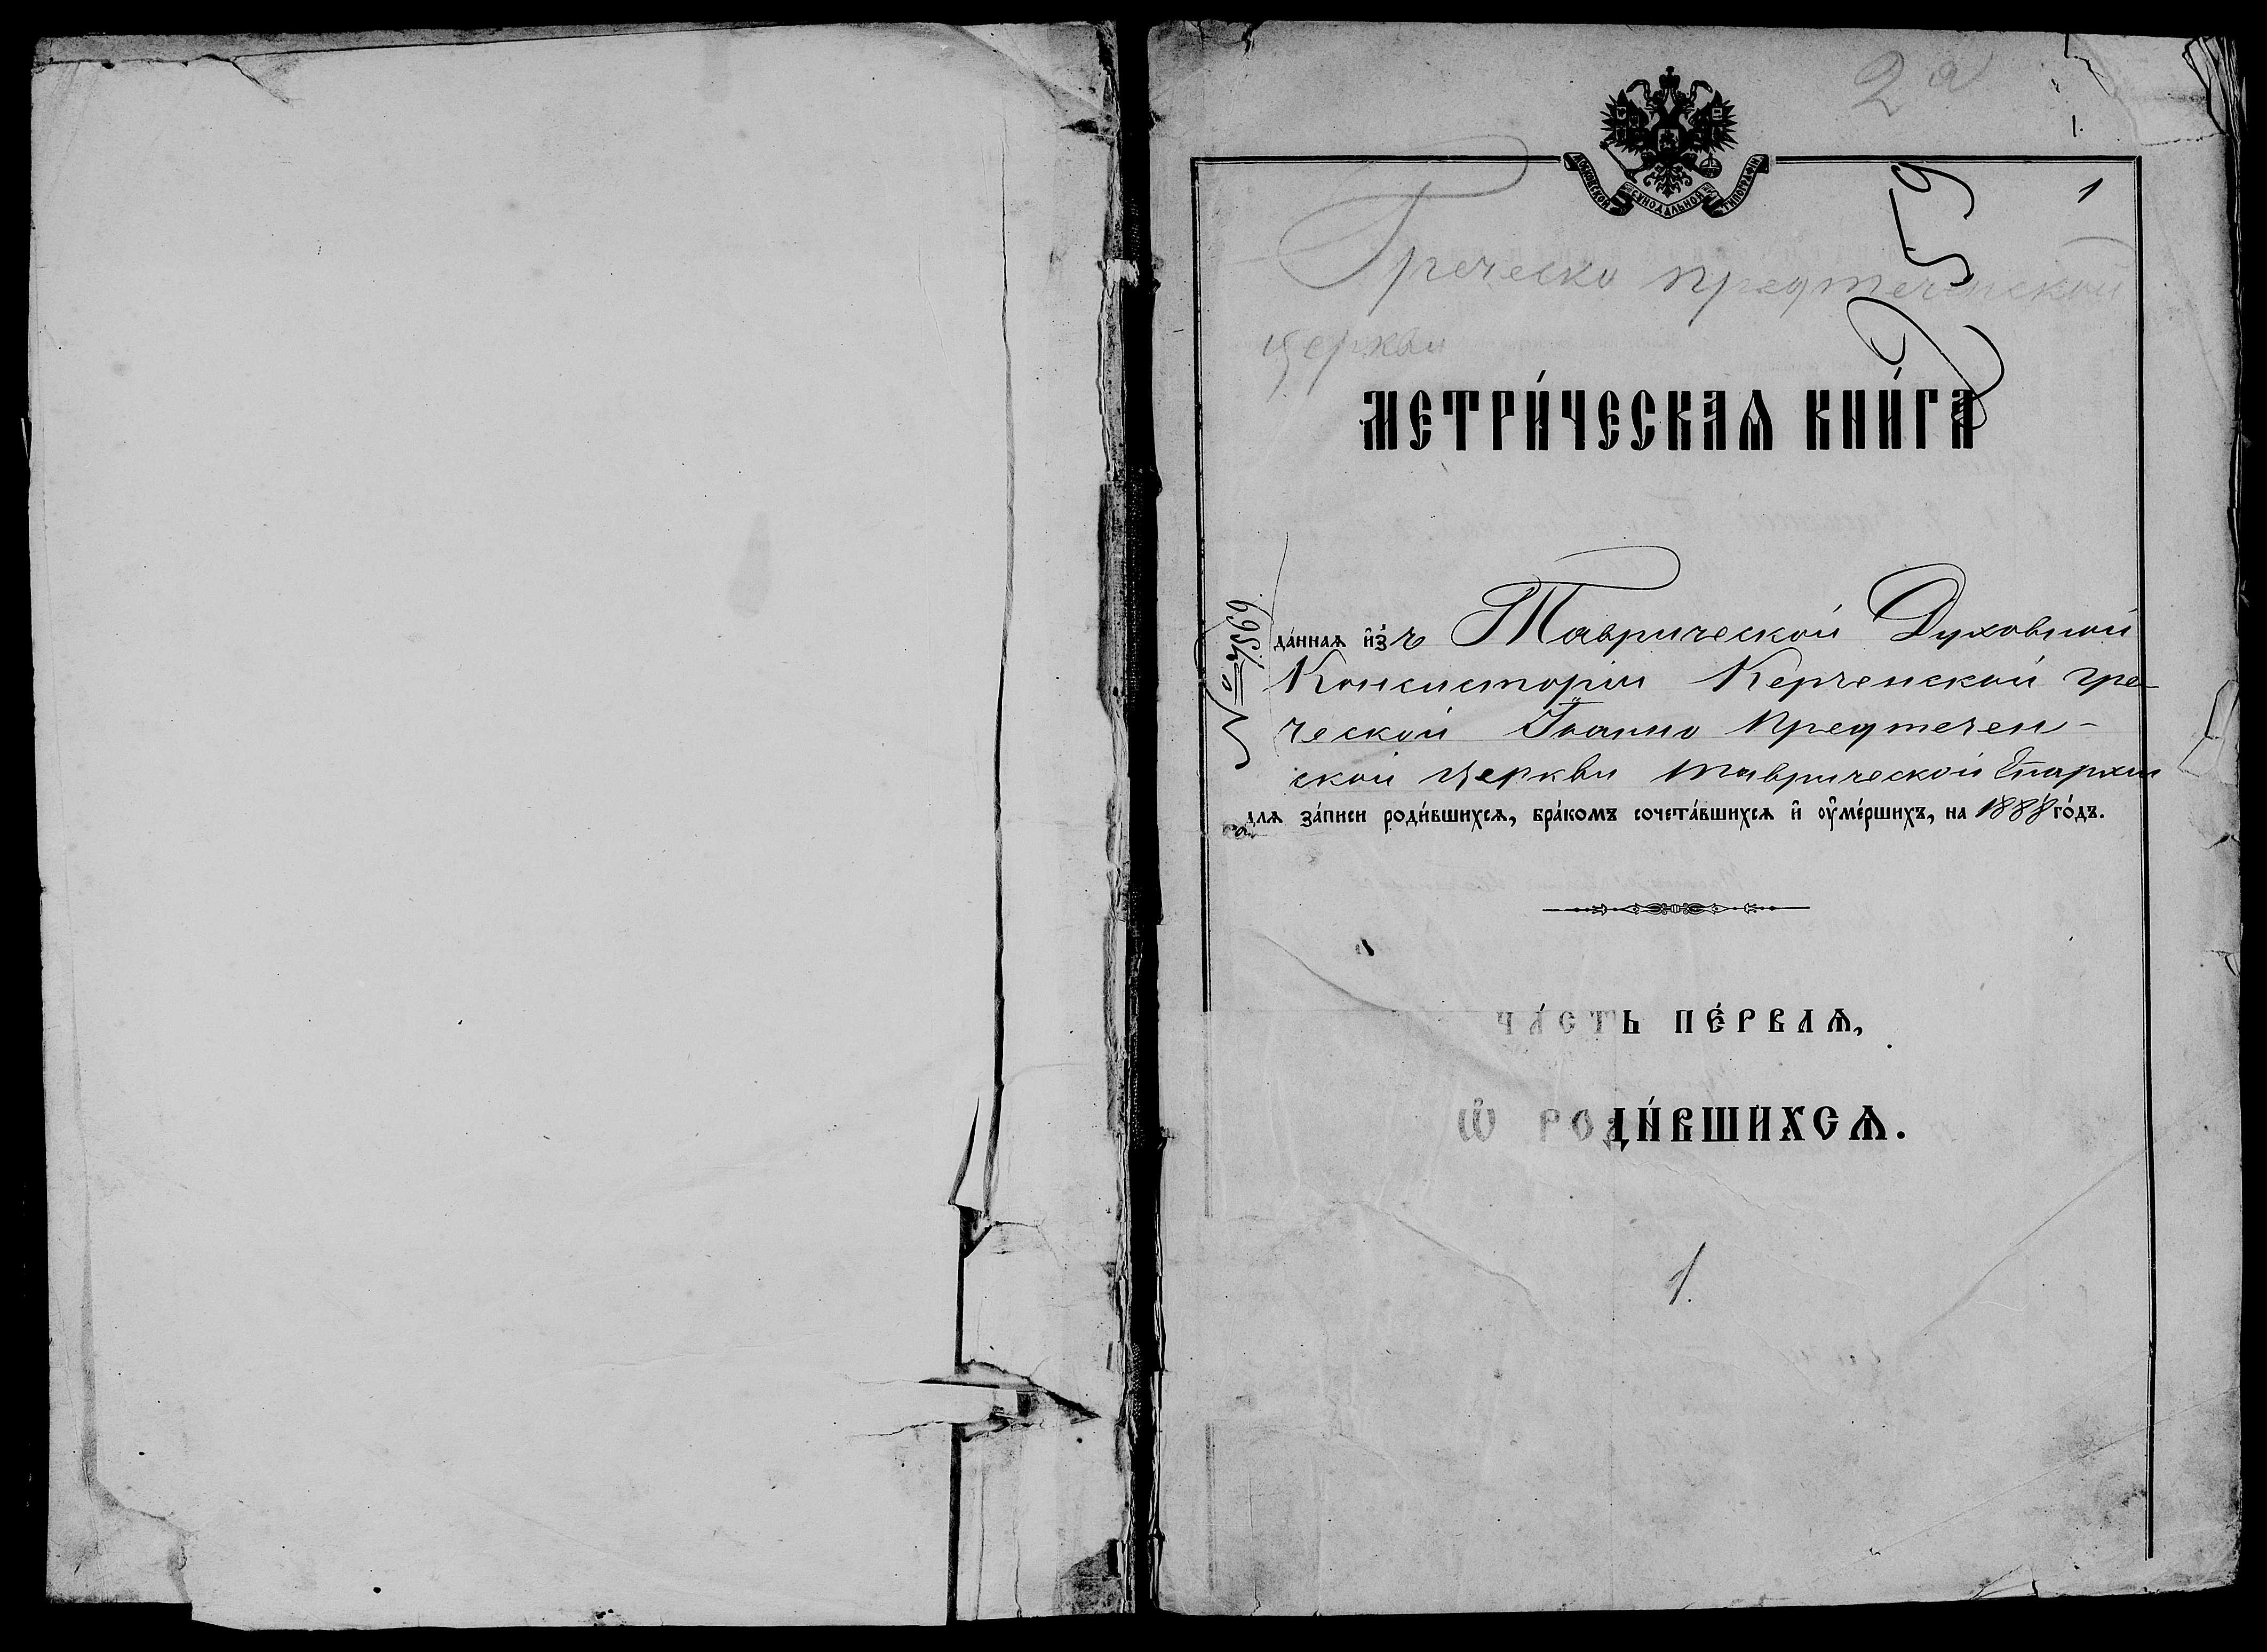 2а
1.
МОСКОВСКОЙ СѴНОДАЛЬНОЙ ТИПОГРАФІИ
1
259
Греческо Предтеченской
церкви
МЕТРИ́ЧЕСКАѦ КНИ́ГА
да́ннаѧ и҆́зъ Таврической Духовной
Консисторіи Керченской гре-
ческой Іоанно Предтечен-
ской церкви Таврической Епархіи
для за́писи роди́вшихсѧ, бра́комъ сочета́вшихсѧ и҆ ᲂу҆ме́ршихъ, на 1888 го́дъ.
№
ЧА́СТЬ ПЕ́РВАѦ,
Ѽ РОДИ́ВШИХСѦ.
1.